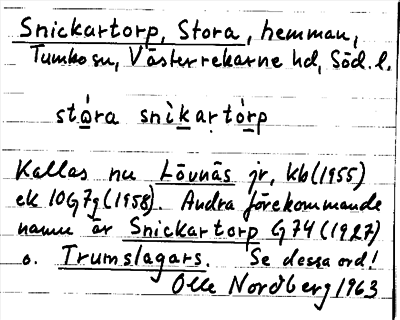 Snickartorp, Stora, hemman,
Tumbo sn, Västerrekarne hd, Söd. l.
stóra snìkartòrp
Kallas nu Lövnäs jr, kb (1955)
ek 10G7g (1958). Andra förekommande
namn är Snickartorp G74 (1927)
o. Trumslagars. Se dessa ord!
Olle Nordberg 1963